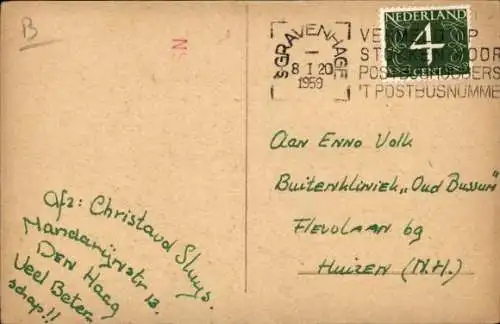 B
NS
NEDERLAND
4
CENT
'SGRAVENHAGE
8 I 20
1959
VE
ST KEN VOOR
POSTBUSHOUDERS
'T POSTBUSNUMME
Aan Enno Volk
Buitenkliniek „Oud Bussum"
Flevolaan 69
Huizen (N.H.)
Afz: Christaud Sluys.
Mandarijnstr 12.
Den Haag
Veel Beter-
schap!!